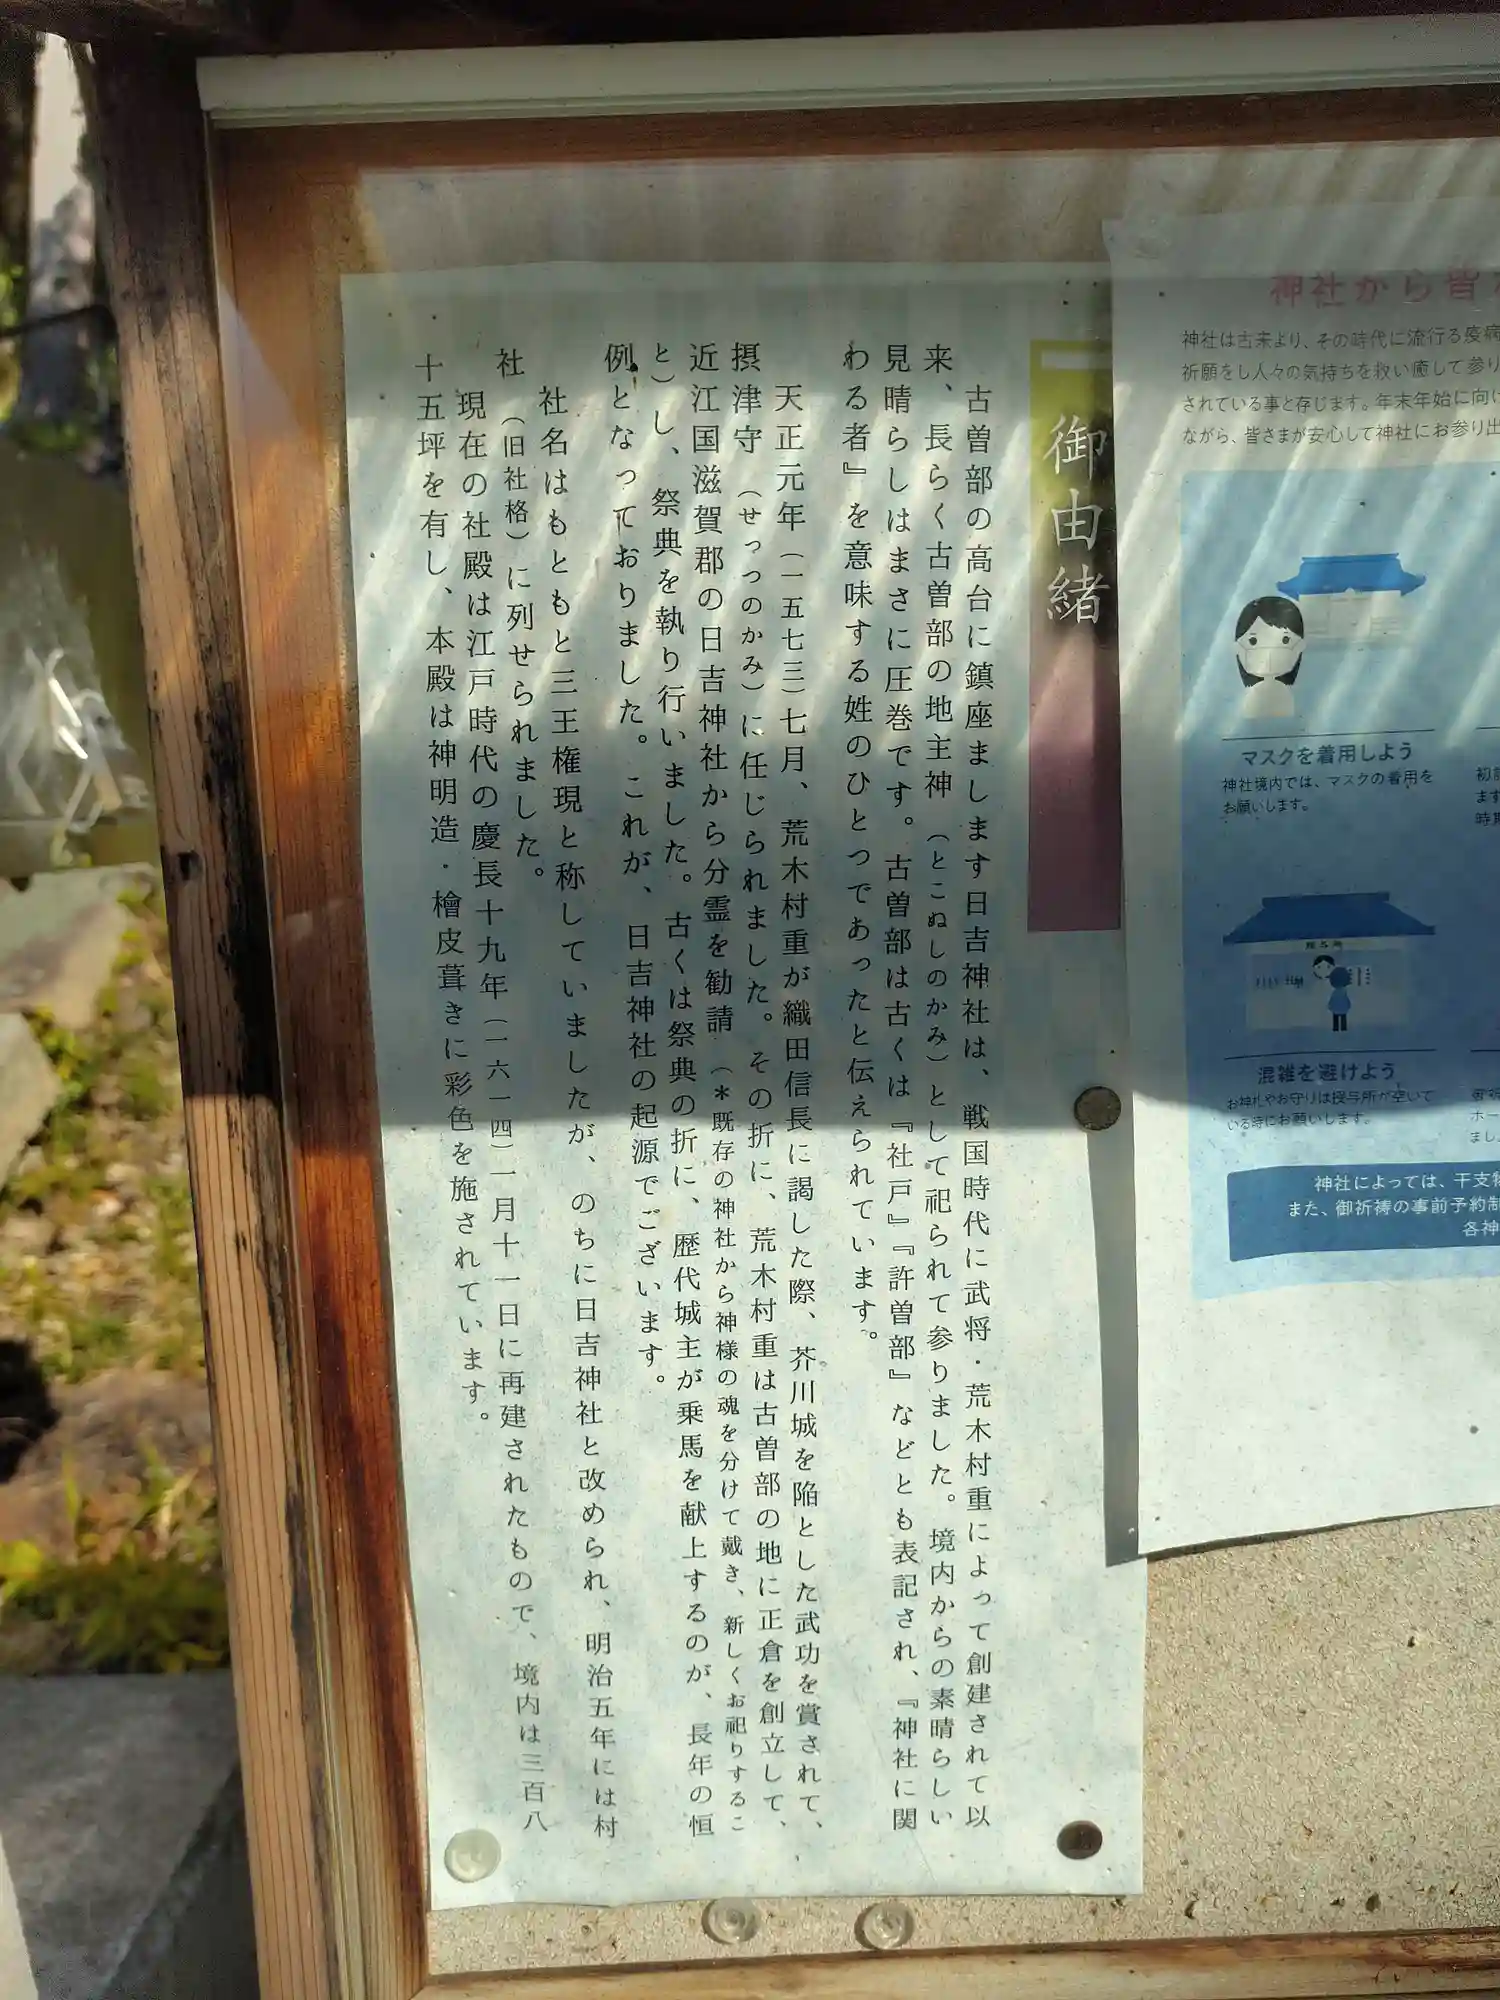 御由緒
古曽部の高台に鎮座まします日吉神社は、戦国時代に武将・荒木村重によって創建されて以
来、長らく古曽部の地主神（とこぬしのかみ）として祀られて参りました。境内からの素晴らしい
見晴らしはまさに圧巻です。古曽部は古くは『社戸』『許曽部』などとも表記され、『神社に関
わる者』を意味する姓のひとつであったと伝えられています。
天正元年（一五七三）七月、荒木村重が織田信長に謁した際、芥川城を陥とした武功を賞されて、
摂津守（せっつのかみ）に任じられました。その折に、荒木村重は古曽部の地に正倉を創立して、
近江国滋賀郡の日吉神社から分霊を勧請（＊既存の神社から神様の魂を分けて戴き、新しくお祀りするこ
と）し、祭典を執り行いました。古くは祭典の折に、歴代城主が乗馬を献上するのが、長年の恒
例となっておりました。これが、日吉神社の起源でございます。
社名はもともと三王権現と称していましたが、のちに日吉神社と改められ、明治五年には村
社（旧社格）に列せられました。
現在の社殿は江戸時代の慶長十九年（一六一四）一月十一日に再建されたもので、境内は三百八
十五坪を有し、本殿は神明造・檜皮葺きに彩色を施されています。
神社から皆
神社は古来より、その時代に流行る疫病
祈願をし人々の気持ちを救い癒して参り
されている事と存じます。年末年始に向け
ながら、皆さまが安心して神社にお参り出
マスクを着用しよう
神社境内では、マスクの着用を
お願いします。
初
ます
時期
授与所
混雑を避けよう
お神札やお守りは授与所が空いて
いる時にお願いします。
ホー
まし
神社によっては、干支
また、御祈祷の事前予約制
各神